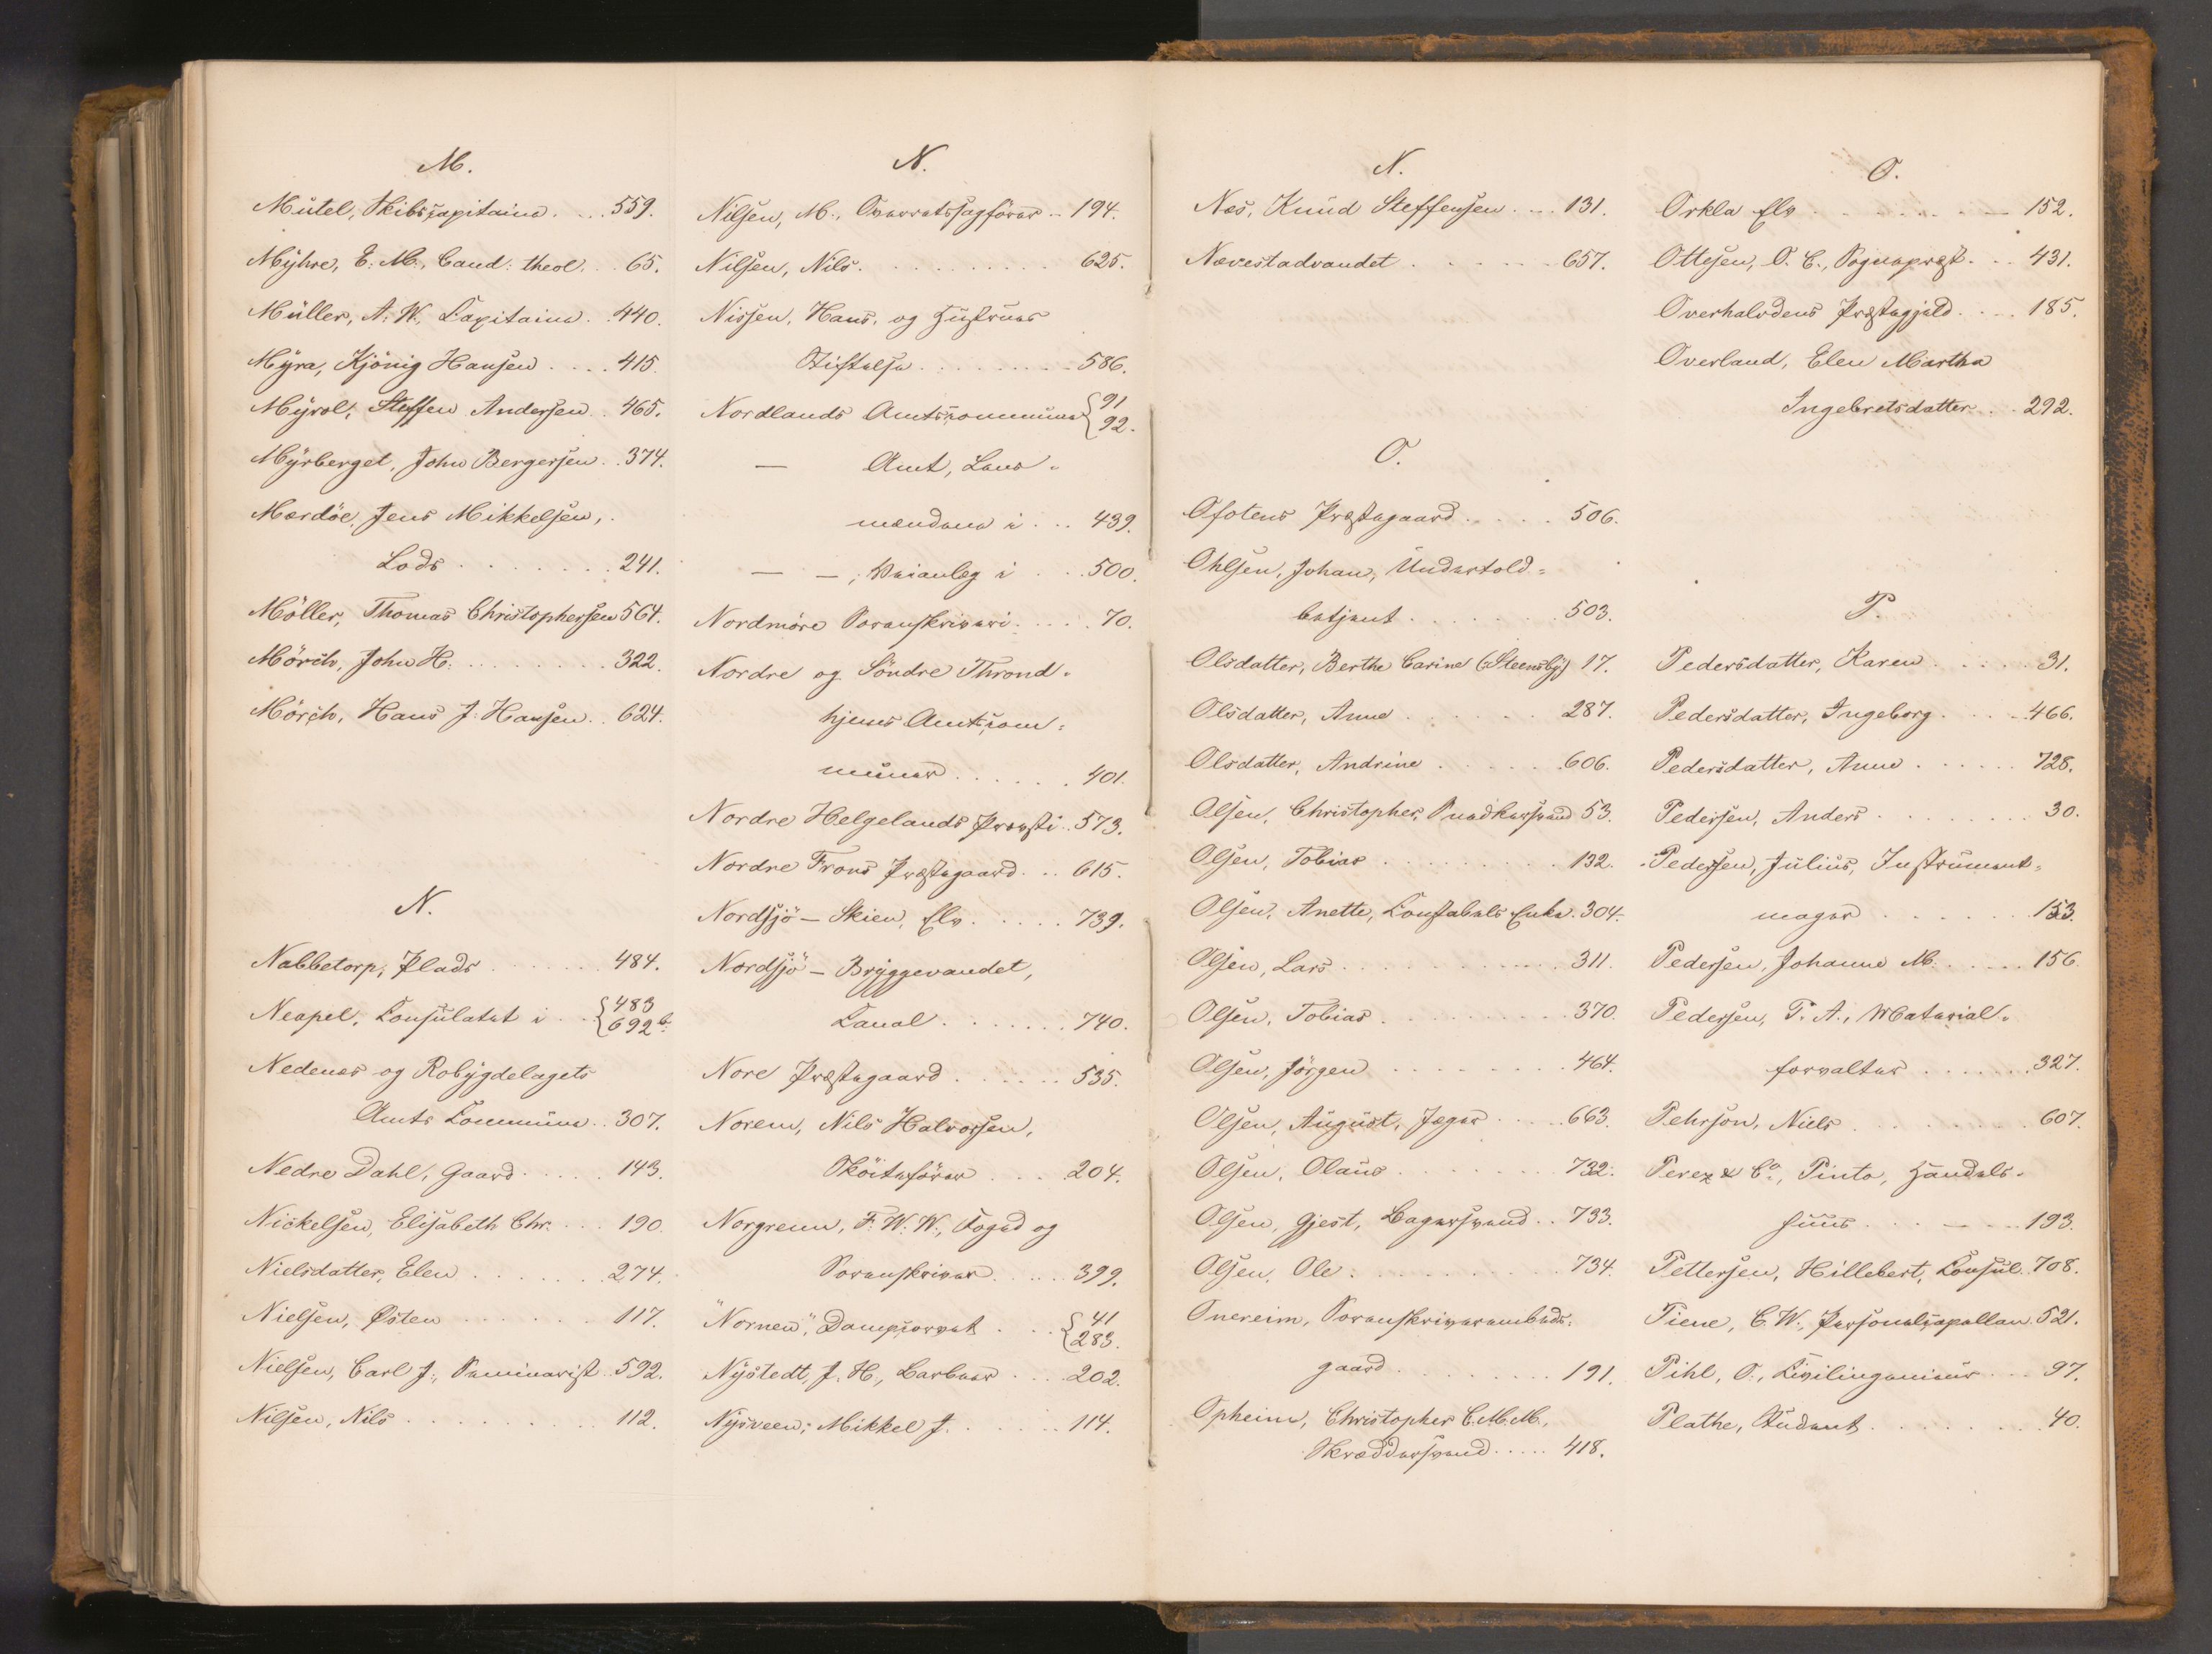 M.
Mütel, Skibscapitaine . . . 559.
Myhre, E. M., Cand: theol. . . 65.
Müller, A. W., Capitaine . . 440.
Myra, Kjönig Hansen . . . . 415.
Myrol, Steffen Andersen . . 465.
Myrberget, John Bergersen . . 374.
Mærdöe, Jens Mikkelsen,
Lods . . . . . . . 241.
Möller, Thomas Christophersen 564.
Mörch, John H. . . . . . . . . 322.
Mörch, Hans J. Hansen . . 624.
N.
Nabbetorp, Plads . . . . . . 484.
Neapel, Consulatet i . . { 483
692 b.
Nedenes og Robygdelagets
Amts Commune . . 307.
Nedre Dahl, Gaard . . . . 143.
Nickelsen, Elisabeth Chr. . . . 190.
Nielsdatter, Elen . . . . . . . 274.
Nielsen, Østen . . . . . . 117.
Nielsen, Carl J., Seminarist . . 592.
Nilsen, Nils . . . . . . . . . 112.
N.
Nilsen, M., Overretssagförer . . 194.
Nilsen, Nils . . . . . . . . . . 625.
Nissen, Hans, og Hustrues
Stiftelse . . . . . . . . . 586.
Nordlands Amtscommune { 91
92.
— Amt, Lens-
mændene i . . . 439.
— —, Veianlæg i . . . 500.
Nordmöre Sorenskriveri . . . . 70.
Nordre og Söndre Thrond-
hjems Amtscom-
muner . . . . . . 401.
Nordre Helgelands Provsti . . 573.
Nordre Frons Præstegaard . . . 615.
Nordsjö — Skien, Elv . . . . . 739.
Nordsjö — Bryggevandet,
Canal . . . . . . . 740.
Nore Præstegaard . . . . . . 535.
Norem, Nils Halvorsen,
Sköiteförer . . . 204.
Norgrenn, F. W. W., Foged og
Sorenskriver . . . . . 399.
"Nornen", Dampcorvet . . . { 41
283.
Nystedt, J. H., Barbeer . . . . 202.
Nysveen, Mikkel J. . . . . . . 114.
N.
Næs, Knud Steffensen . . . 131.
Nævestadvandet . . . . . . 657.
O.
Ofotens Præstegaard . . . . . 506.
Ohlsen, Johan, Undertold-
betjent . . . . . . . 503.
Olsdatter, Berthe Carine (Steensby) 17.
Olsdatter, Anne . . . . . . 287.
Olsdatter, Andrine . . . . . . 606.
Olsen, Christopher, Snedkersvend 53.
Olsen, Tobias . . . . . . . . . 132.
Olsen, Anette, Constabels Enke . 304.
Olsen, Lars . . . . . . . . . . . 311.
Olsen, Tobias . . . . . . . . . . 370.
Olsen, Jörgen . . . . . . . . . 464.
Olsen, August, Jæger . . . . . 663.
Olsen, Olaus . . . . . . . . 732.
Olsen, Gjest, Bagersvend . . 733.
Olsen, Ole . . . . . . . . . . 734.
Onereim, Sorenskriverembeds-
gaard . . . . . . . . . 191.
Opheim, Christopher C. M. M.,
Skræddersvend . . . . . 418.
O.
Orkla Elv . . . . . . . . 152.
Ottesen, O. C., Sognepræst . . . 431.
Overhalvdens Præstegjeld . . . . 185.
Overland, Elen Martha
Ingebretsdatter . . . 292.
P.
Pedersdatter, Karen . . . . . 31.
Pedersdatter, Ingeborg . . . . . 466.
Pedersdatter, Anne . . . . . . 728.
Pedersen, Anders . . . . . . . . . 30.
Pedersen, Julius, Instrument-
mager . . . . . . . 153.
Pedersen, Johanne M. . . . . . 156.
Pedersen, P. A., Material-
forvalter . . . . . . . 327.
Pehrson, Niels . . . . . . . . . 607.
Perez & Co., Pinto, Handels-
huus . . . . . . 193.
Pettersen, Hillebert, Consul . . 708.
Piene, C. W., Personelcapellan . 521.
Pihl, O., Civilingenieur . . . 97.
Plathe, Student . . . . . . . . . 40.